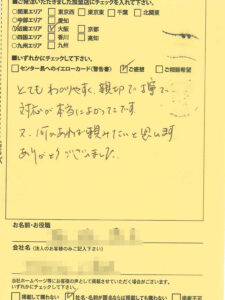 ■ご発注いただきました加盟店にチェックを入れて下さい。
○関東エリア □東京西 □東京東 □千葉 □北関東
○中部エリア □愛知
○近畿エリア ☑大阪 □京都
○四国エリア □香川 □高知
○九州エリア □九州
■いずれかにチェックして下さい。
□センター長へのイエローカード(警告書) ☑ご感想 □ご相談希望
とてもわかりやすく、親切で丁寧で
対応が本当によかったです
又、何かあれば頼みたいと思います
ありがとうございました。
お名前・お役職
会社名 (法人のお客様のみご記入下さい)
当社ホームページ等にお客様の声として掲載させていただく場合がございます。
いずれかにチェックして下さい。
□掲載して構わない ☑社名・名前が匿名ならば掲載しても構わない □掲載不可